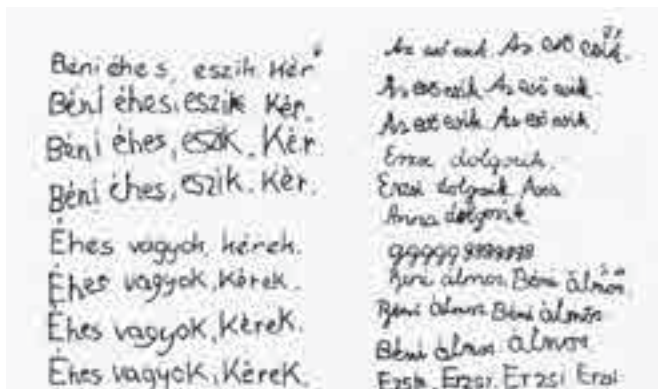 Béni éhes, eszik Kér
Béni éhes, eszik Kér.
Béni éhes, eszik. Kér.
Béni éhes, eszik. Kér.
Éhes vagyok, kérek.
Éhes vagyok, Kérek.
Éhes vagyok, Kérek.
Éhes vagyok, Kérek.
Az eső esik. Az eső esik.
Az eső esik Az eső esik.
Az eső esik Az eső esik.
dolgozik.
Erzsi dolgozik Anna
Anna dolgozik
ggggg ggggggg
Béni álmos Béni álmos.
Béni álmos Béni álmos
Béni álmos álmos
Erzsi Erzsi Erzsi Erzsi